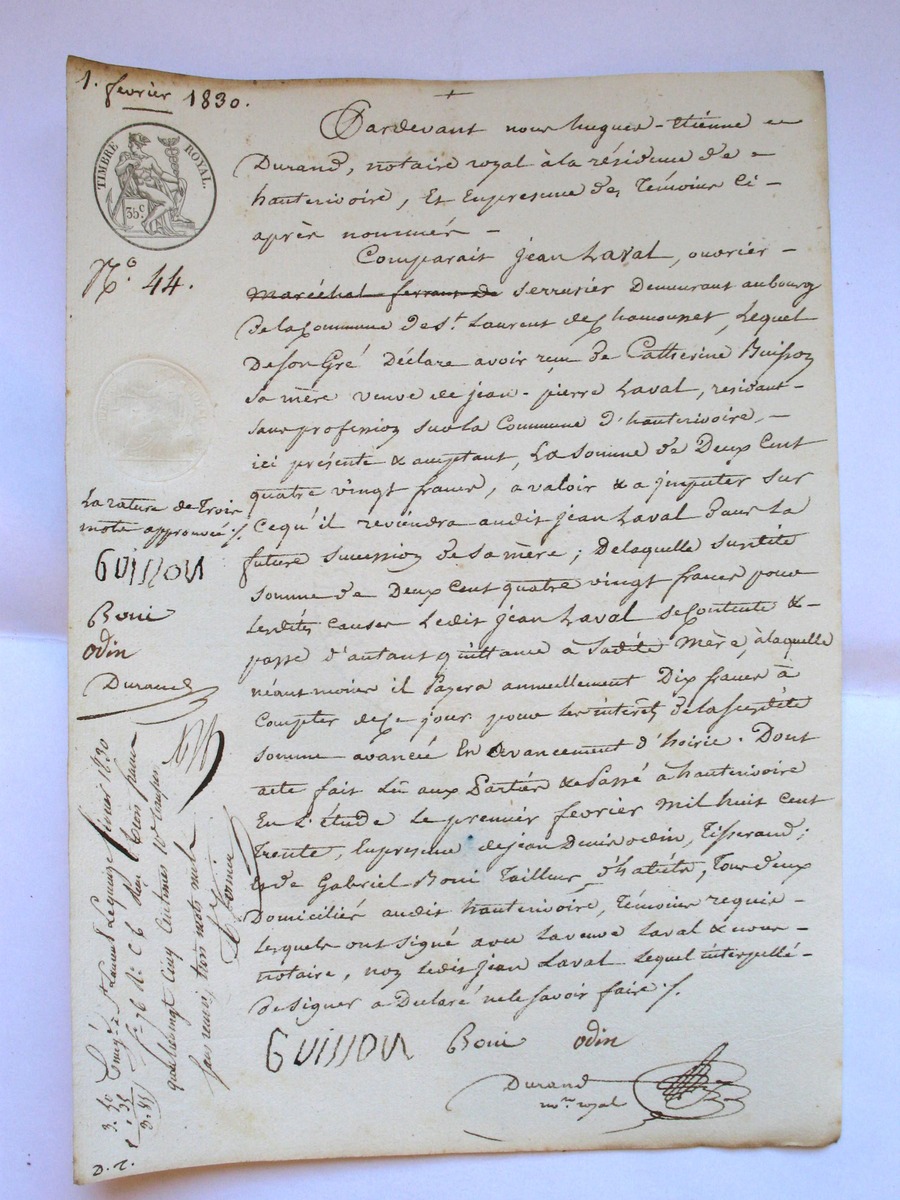 1. fevrier 1830.
TIMBRE ROYAL.
35c.
N.o 44.
Pardevant nous hugues-Etiénne
Durand, notaire royal à la résidence de
hauterivoire, Et Enpresence des Témoins Ci-
après nommés -
Comparait jean Laval, ouvrier -
maréchal ferrant de serrurier Demeurant aubourg
delaCommune de St. Laurent de Chamousset, Lequel
DeSon Gré Déclare avoir reçu de Catherine Buisson
Sa mère veuve de jean-pierre Laval, residant-
Sans profession sur la Commune d'hauterivoire, -
ici présente & acceptant, La Somme de Deux Cent
quatre vingt francs, a valoir & a jmputer sur
Cequ'il reviendra audit jean Laval dans La
future succession de Sa mère; Delaquelle susdite
somme de Deux Cent quatre vingt francs pour
Lesdites Causes Ledit jean Laval seContente &-
passe d'autant quittance à Sadite Mère, àlaquelle
néantmoins il Payera annuellement Dix francs à
Compter de Ce jour pour Les interêts de La susdite
Somme avancée En avancement d'hoirie. Dont
acte fait Lû aux Parties & Passé à hauterivoire
En L'étude Le premier fevrier mil huit cent
trente, Enpresence de jean Denis odin, Tisserand;
& de Gabriel Boni Tailleur d'habits, Tous deux
Domiciliés audit hauterivoire, Témoins requis-
Lesquels ont Signé avec La veuve Laval & nous-
notaire, non Ledit jean Laval Lequel interpellé-
De Signer a Declaré ne le Savoir faire ./.
GUISSON Boni odin
Durand
nore royal
La rature de Trois
mots approuvée ./.
GUISSON
Boni
odin
Durand
Enreg.é à St Laurent Le quinze fevrier 1830
fo 76 Ro C 6 Reçu trois francs
quatrevingt Cinq Centimes 10e Compris
sans renvoi, trois mots nuls
3. 50
. 35
3. 85
D. T.